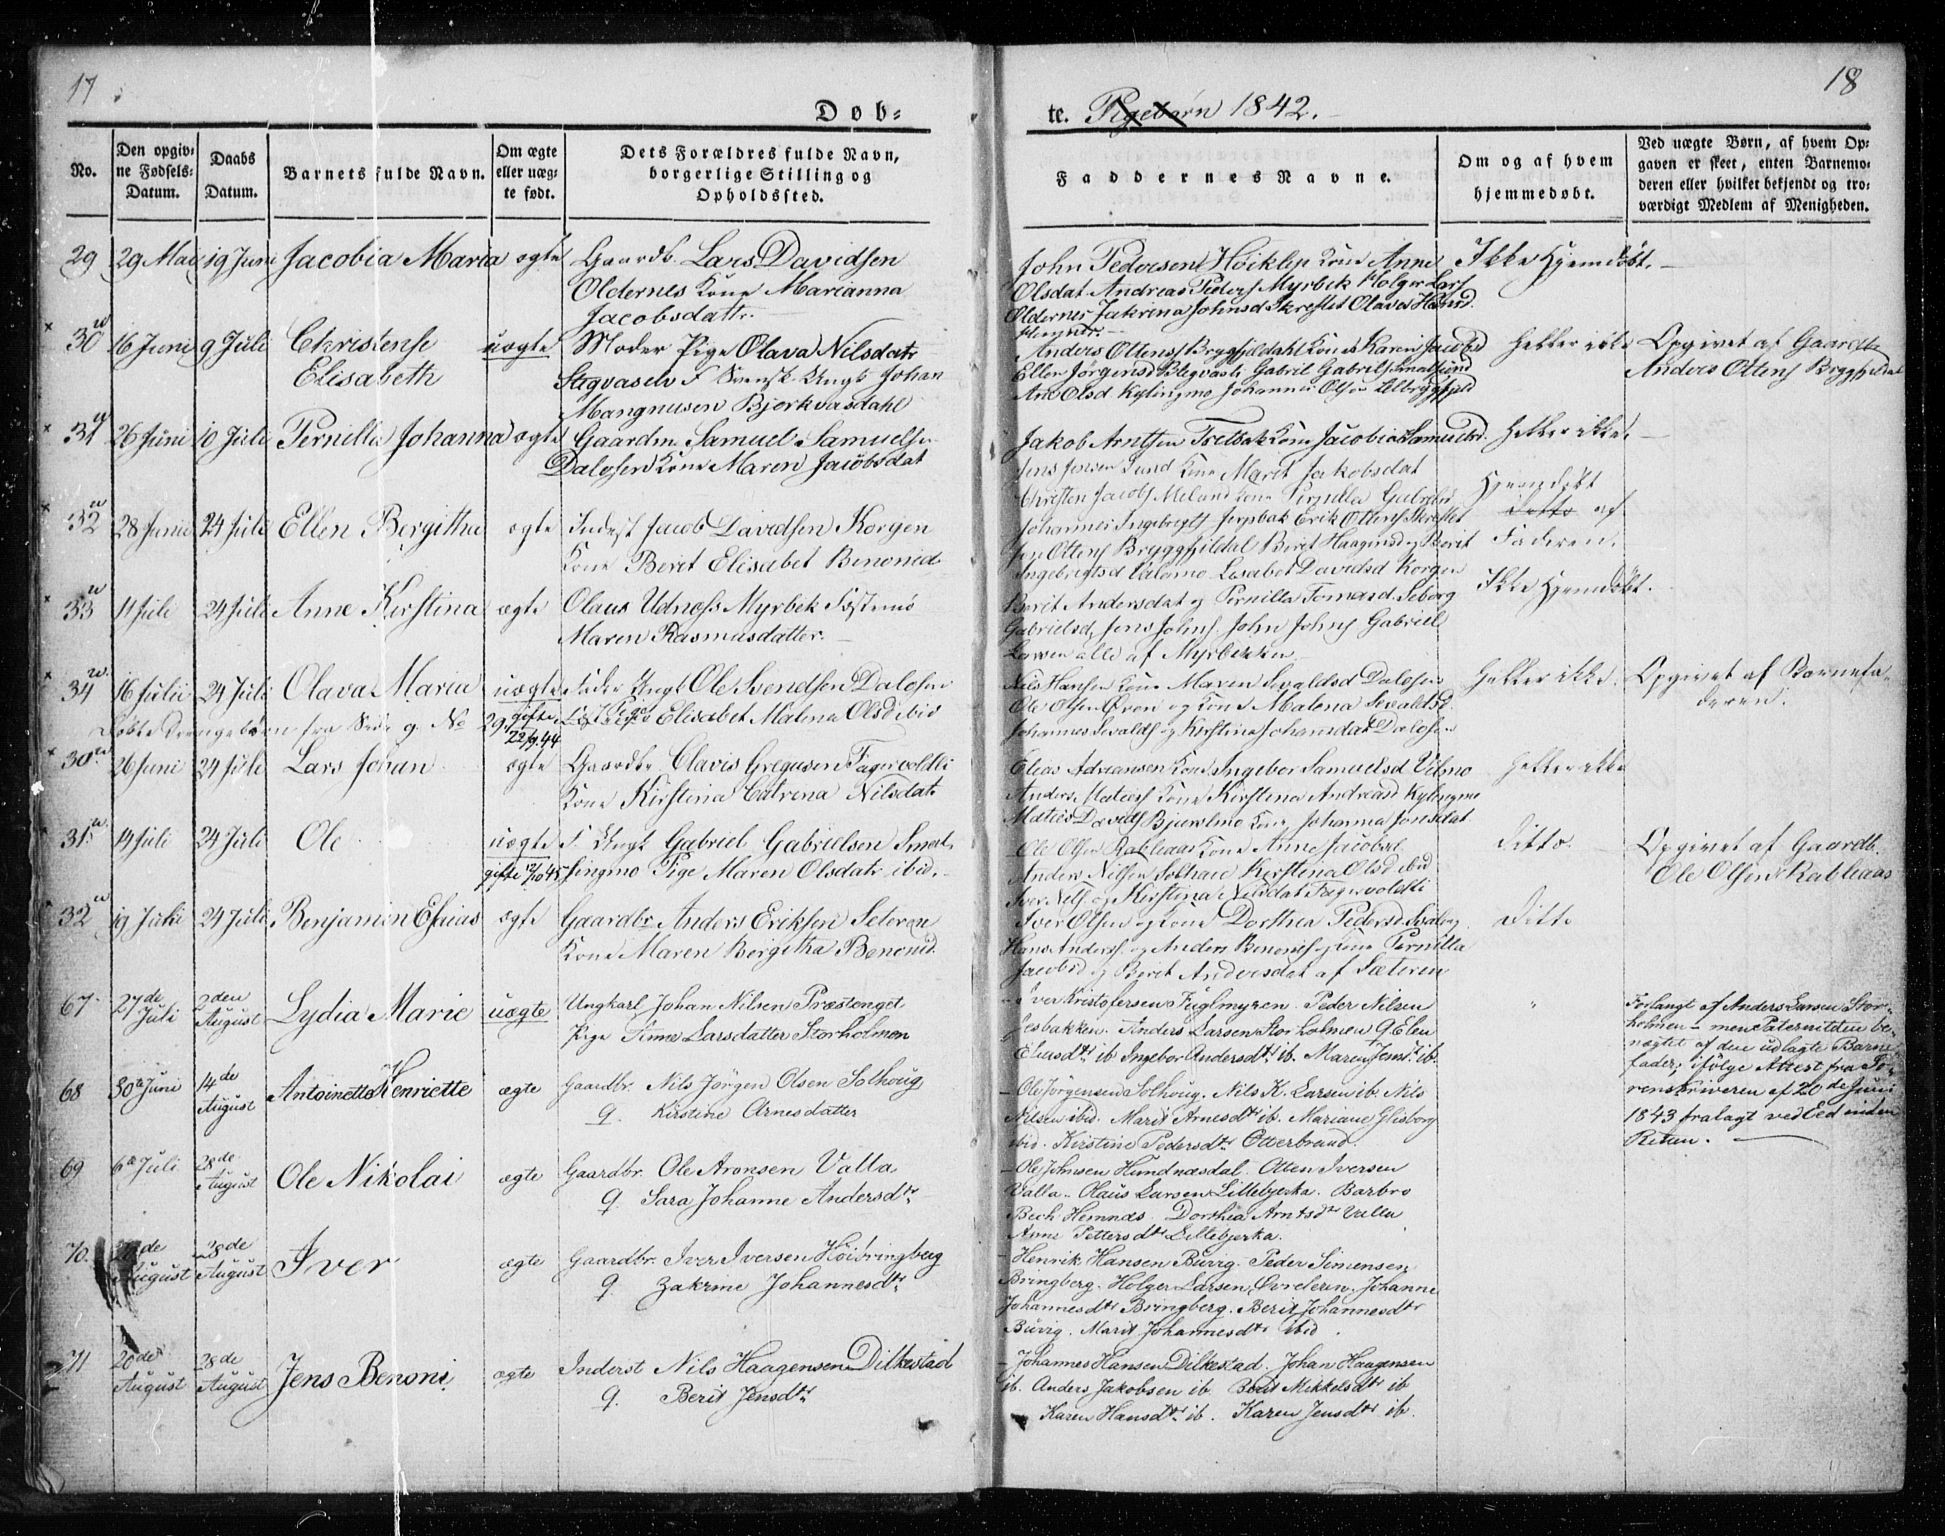 17
18
Døb-
te. Pigebørn 1842.
No.
Den opgiv-
ne Fødsels-
Datum.
Daabs
Datum.
Barnets fulde Navn.
Om ægte
eller uæg-
te født.
Dets Forældres fulde Navn,
borgerlige Stilling og
Opholdssted.
Faddernes Navne.
Om og af hvem
hjemmedøbt.
Ved uægte Børn, af hvem Op-
gaven er skeet, enten Barnemo-
deren eller hvilket bekjendt og tro-
værdigt Medlem af Menigheden.
29 29 Mai 19 Juni Jacobia Maria ægte Gaardb. Lars Davidsen
Oldernes Kone Marianna
Jacobsdattr.
John Pedersen Høiklep Kone Anne
Olsdat Andreas Peders Myrbek Holger Lars
Oldernes Jakrina Johnsd Skreslet Olava
Ikke Hjemdøbt.
30 16 Juni 9 Juli Christense
Elisabeth
uægte Moder Pige Olava Nilsdatr
F Svensk Ungk Johan
Mangnusen Bjorkvasdahl
Anders Ottens Bryggfjeldahl Kone Karen Jacobsd
Ellen Jørgensd Gabriel Gabriels
Ane Olsd Kylingmo Johannes Olsen
Heller ikke
Opgivet af Gaardb
Anders Ottens Bryggfjeldal
31 26 Juni 10 Juli Pernilla Johanna ægte Gaardm Samuel Samuelse
Dalosen Kone Maren Jacobsdat
Jakob Arntsen Kone Jacobia Samuelsd.
Jens Jensen Sund Kone Marit Jakobsdat
Christen Jacobs Meland Kone Pernilla Gabrielsd
Heller ikke.
32 28 Junii 24 Juli Ellen Bergitha ægte Inderst Jacob Davidsen Korgen
Kone Berit Elisabet Benonid
Johannes Ingebrigts Erik Ottens Skreslet
Ottens Bryggfjeldal Berit Haagensd og Berit
Ingebrigtsd Lisabet Davidsd Korgen
Hjemdøbt
ditto af
Faderen.
33 11 Juli 24 Juli Anne Kirstina ægte Olaus Udness Myrbek
Maren Rasmusdatter.
Berit Andersdat og Pernilla Tomasd Seborg
Gabrielsd, Jens Johns John Johns Gabriel
Larsen alle af Myrbekken
Ikke Hjemdøbt.
34 16 Julii 24 Juli Olava Maria uægte Fader Ungk Ole Svendsen Dalosen
gifte
22/9.44
Pige Elisabet Malena Olsd ibid
Nils Hansen Kone Maren Sevaldsd Dalosen
Ole Olsen og Kone Malena Sevaldsd
Johannes Sevalds og Kirstina Johansdat Dalosen
Heller ikke.
Opgivet af Barnefa-
deren.
Døbte Drengebørn fra Side 9. No 29
30 26 Juni 24 Juli Lars Johan ægte Gaardbr Clavis Gregusen Fagervoldli
Kone Kirstina Catrena Nilsdat
Elias Adriansen Kone Ingebor Samuelsd Vilmo
Anders Mateus Kone Kirstina Andreasd Kylingmo
Mateus Davids Bjurselmo Kone Johanna Jonsdat
Heller ikke
31 14 Juli 24 Juli Ole uægte F. Ungk Gabriel Gabrielsen Smal-
gifte 12/10 45 singmo Pige Maren Olsdatr ibid.
Ole Olsen Rableaas Kone Anne Jacobsd
Anders Nilsen Solhaue Kirstina Olsd ibid
Iver Nils og Kirstina Nilsdat Fagervoldli
Ditto.
Opgivet af Gaardb.
Ole Olsen Rableaas
32 19 Juli 24 Juli Benjamin Esaias ægte Gaardbr Anders Eriksen Seteren
Kone Maren Bergitha Benonid.
Iver Olsen og Kone Dorthea Pedersd
Hans Anders og Anders Benonis og Kone Pernilla
Jacobsd og Berit Andersdat af Sæteren
Ditto
67. 27de
Juli
2den
August
Lydia Marie uægte Ungkarl Johan Nilsen Præstenget
Pige Anne Larsdatter Storholmen
Iver Kristofersen Fuglmyren. Peder Nilsen
Lesbakken. Anders Larsen Storholmen 9 Elen
Eliasdtr ib. Ingebor Andersdtr ib. Maren Jensdtr. ib.
Forlangt af Anders Larsen Stor-
holmen – men Paterniteten be-
nægtet af den udlagte Barne-
fader, ifølge Attest fra So-
renskriveren af 20de Juni
1843 fralagt ved Eed inden
Retten.
68 30te Juni 14de
August
Antoinette Henriette ægte Gaardbr. Nils Jörgen Olsen Solhoug
9. Kirstine Arnesdatter
Ole Jörgensen Solhoug. Nils K. Larsen ib. Nils
Nilsen ibid. Marit Arnesdtr ib. Mariane Glisborg
ibid. Kirstine Pedersdtr Otterbrand.
69 6te Juli 28de
August
Ole Nikolai ægte Gaardbr. Ole Aronsen Valla
9. Sara Johanne Andersdtr
Ole Johnsen Hundnæsdal. Otten Iversen
Valla. Olaus Larsen Lillebjerka. Barbro
Bech Hemnæs. Dorthea Arntsdtr Valla
Anne Pettersdtr Lillebjerka.
70. August 28de
August
Iver ægte Gaardbr. Iver Iversen Höibringberg
9. Zakrine Johannesdtr
Henrik Hansen Buvig. Peder Simensen
Bringberg. Holger Larsen. Johanne
Johannesdtr Bringberg. Berit Johannesdtr
Buvig. Marit Johannesdtr ibid.
71 20de
August
28de
August
Jens Benoni ægte Inderst Nils Haagensen Dilkestad
9. Berit Jensdtr
Johannes Hansen Dilkestad. Johan Haagensen
ib. Anders Jakobsen ib. Berit Mikkelsdtr ib
Karen Hansdtr ib. Karen Jensdtr ib.